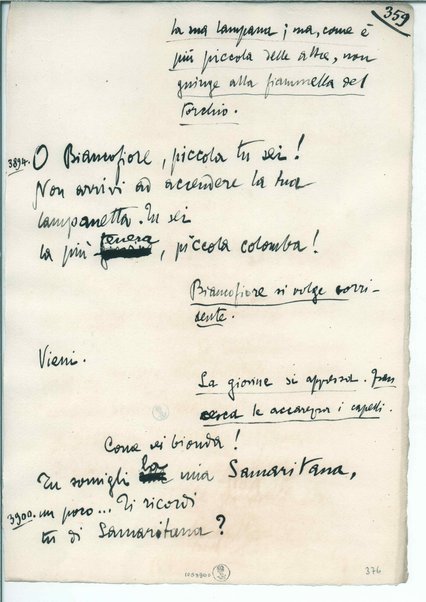 359
la sua lampana; ma, come è
più piccola delle altre, non
giunge alla fiammella del
Torchio.
3894. O Biancofiore, piccola tu sei!
Non arrivi ad accendere la tua
lampanetta. Tu sei
la più tenera, piccola colomba!
Biancofiore si volge sorri-
dente.
Vieni.
La giovine si appressa. Fran
cesca le accarezza i capelli.
Come sei bionda!
Tu somigli la mia Samaritana,
3900. un poco... Ti ricordi
tu di Samaritana?
376